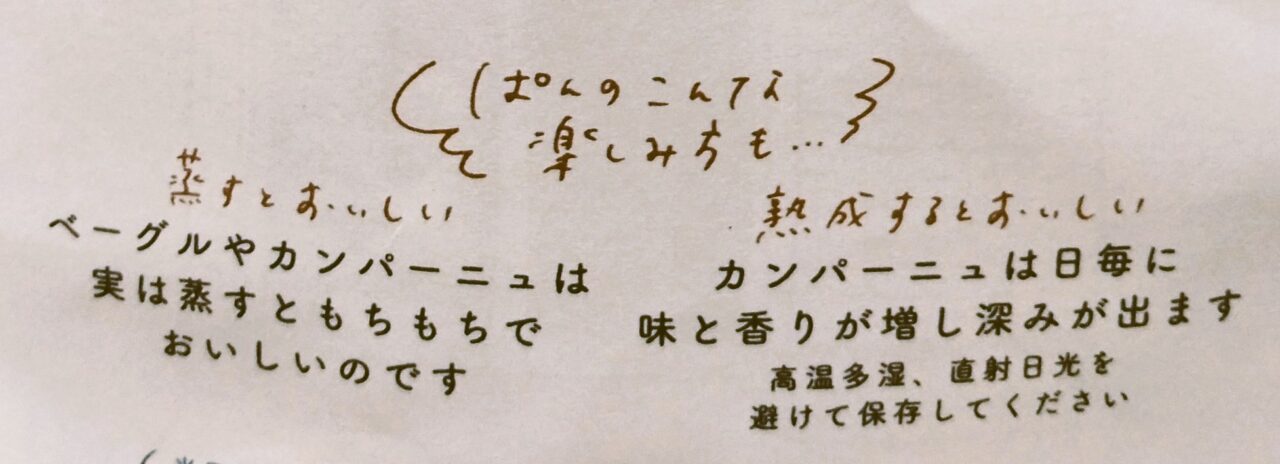 ぱんのこんてえ
楽しみ方も…
蒸すとおいしい
ベーグルやカンパーニュは
実は蒸すともちもちで
おいしいのです
熟成するとおいしい
カンパーニュは日毎に
味と香りが増し深みが出ます
高温多湿、直射日光を
避けて保存してください